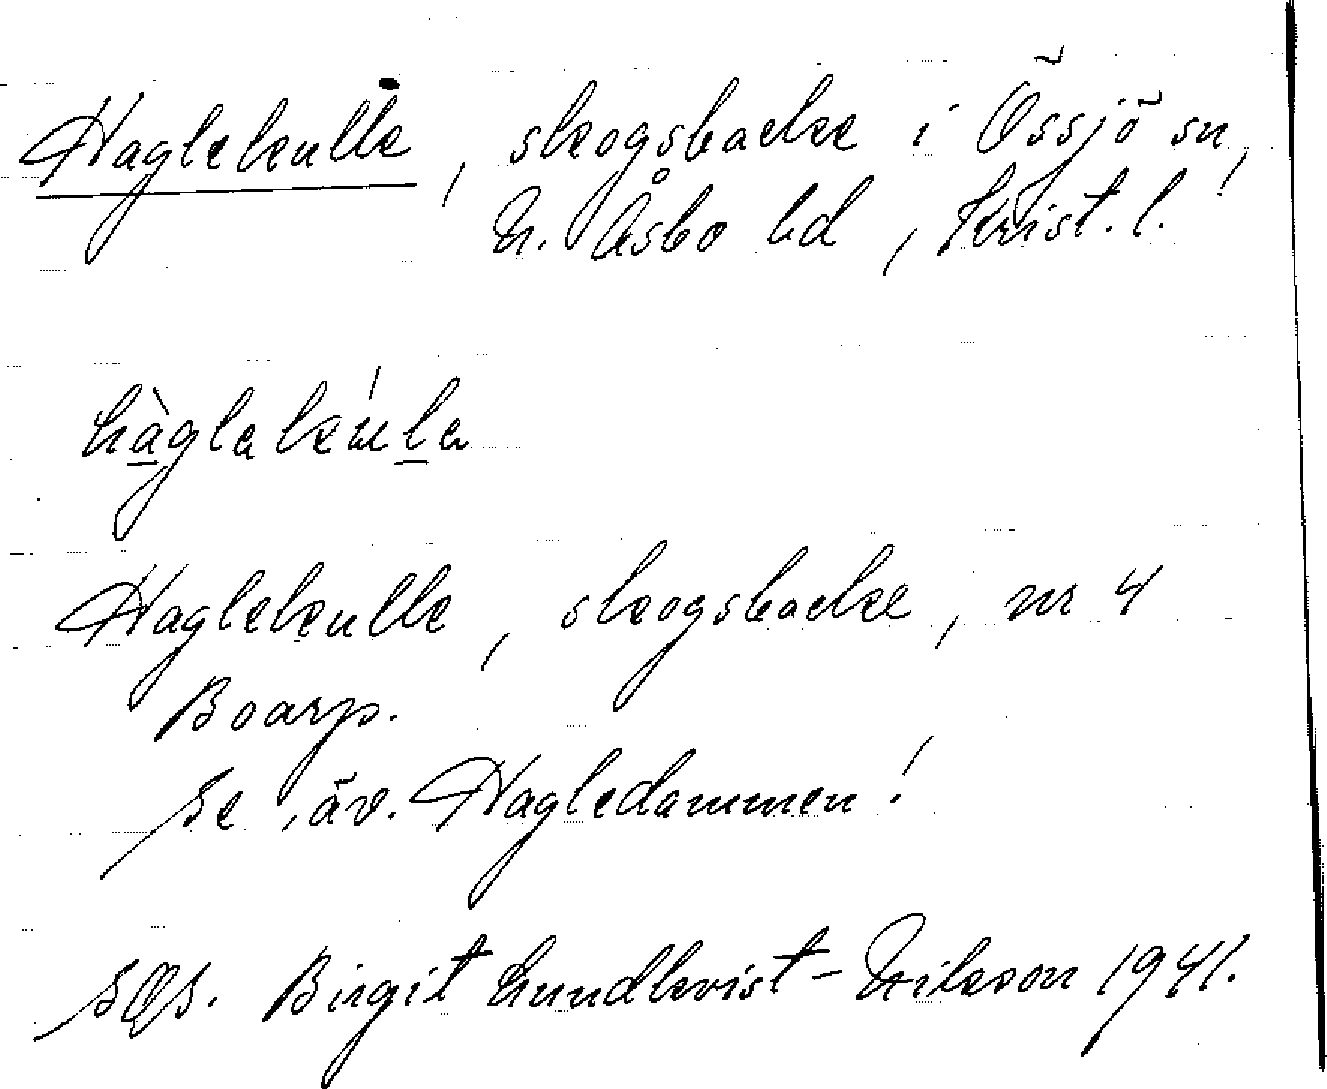 Haglekulle, skogsbacke i Össjö sn,
N. Åsbo hd, Krist. l.
hàglakúla
Haglekulle, skogsbacke, nr 4
Boarp.
Se äv. Hagledammen!
Birgit Lundkvist-Nilsson 1941.